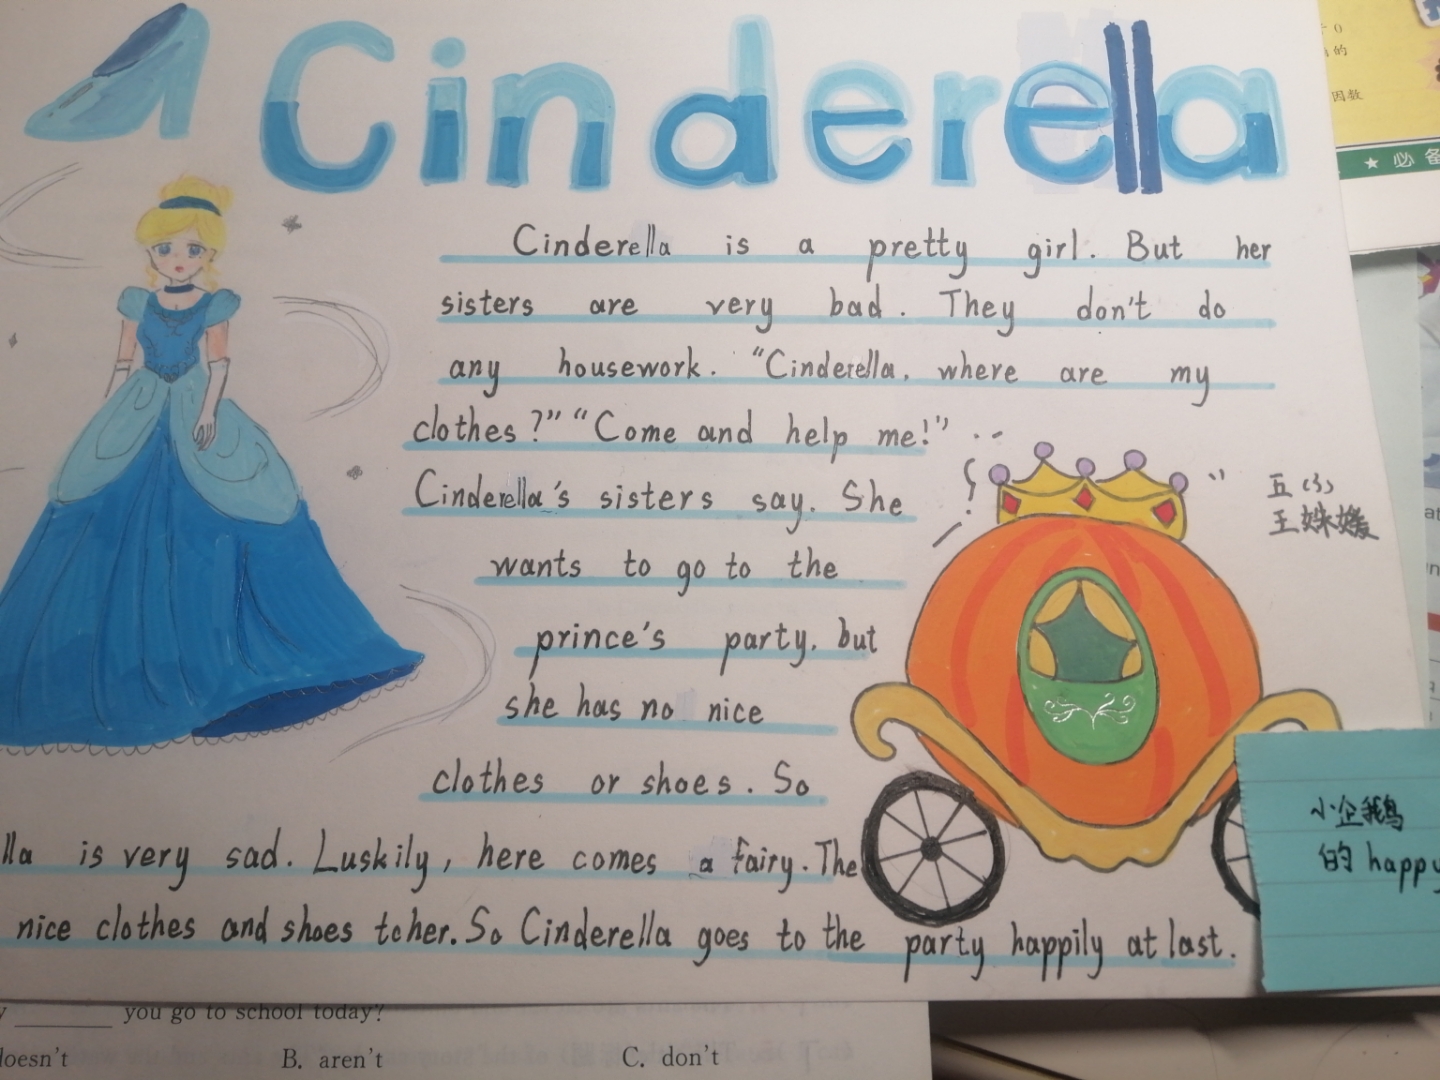 Cinderella
Cinderella is a pretty girl. But her
sisters are very bad. They don't do
any housework. "Cinderella, where are my
clothes?" "Come and help me!"
Cinderella's sisters say. She
wants to go to the
prince's party, but
she has no nice
clothes or shoes. So
lla is very sad. Luskily, here comes a fairy. The
nice clothes and shoes to her. So Cinderella goes to the party happily at last.
五(3)
王姝媛
小企鹅
的 happy
必备
因数
的
you go to school today?
doesn't B. aren't C. don't